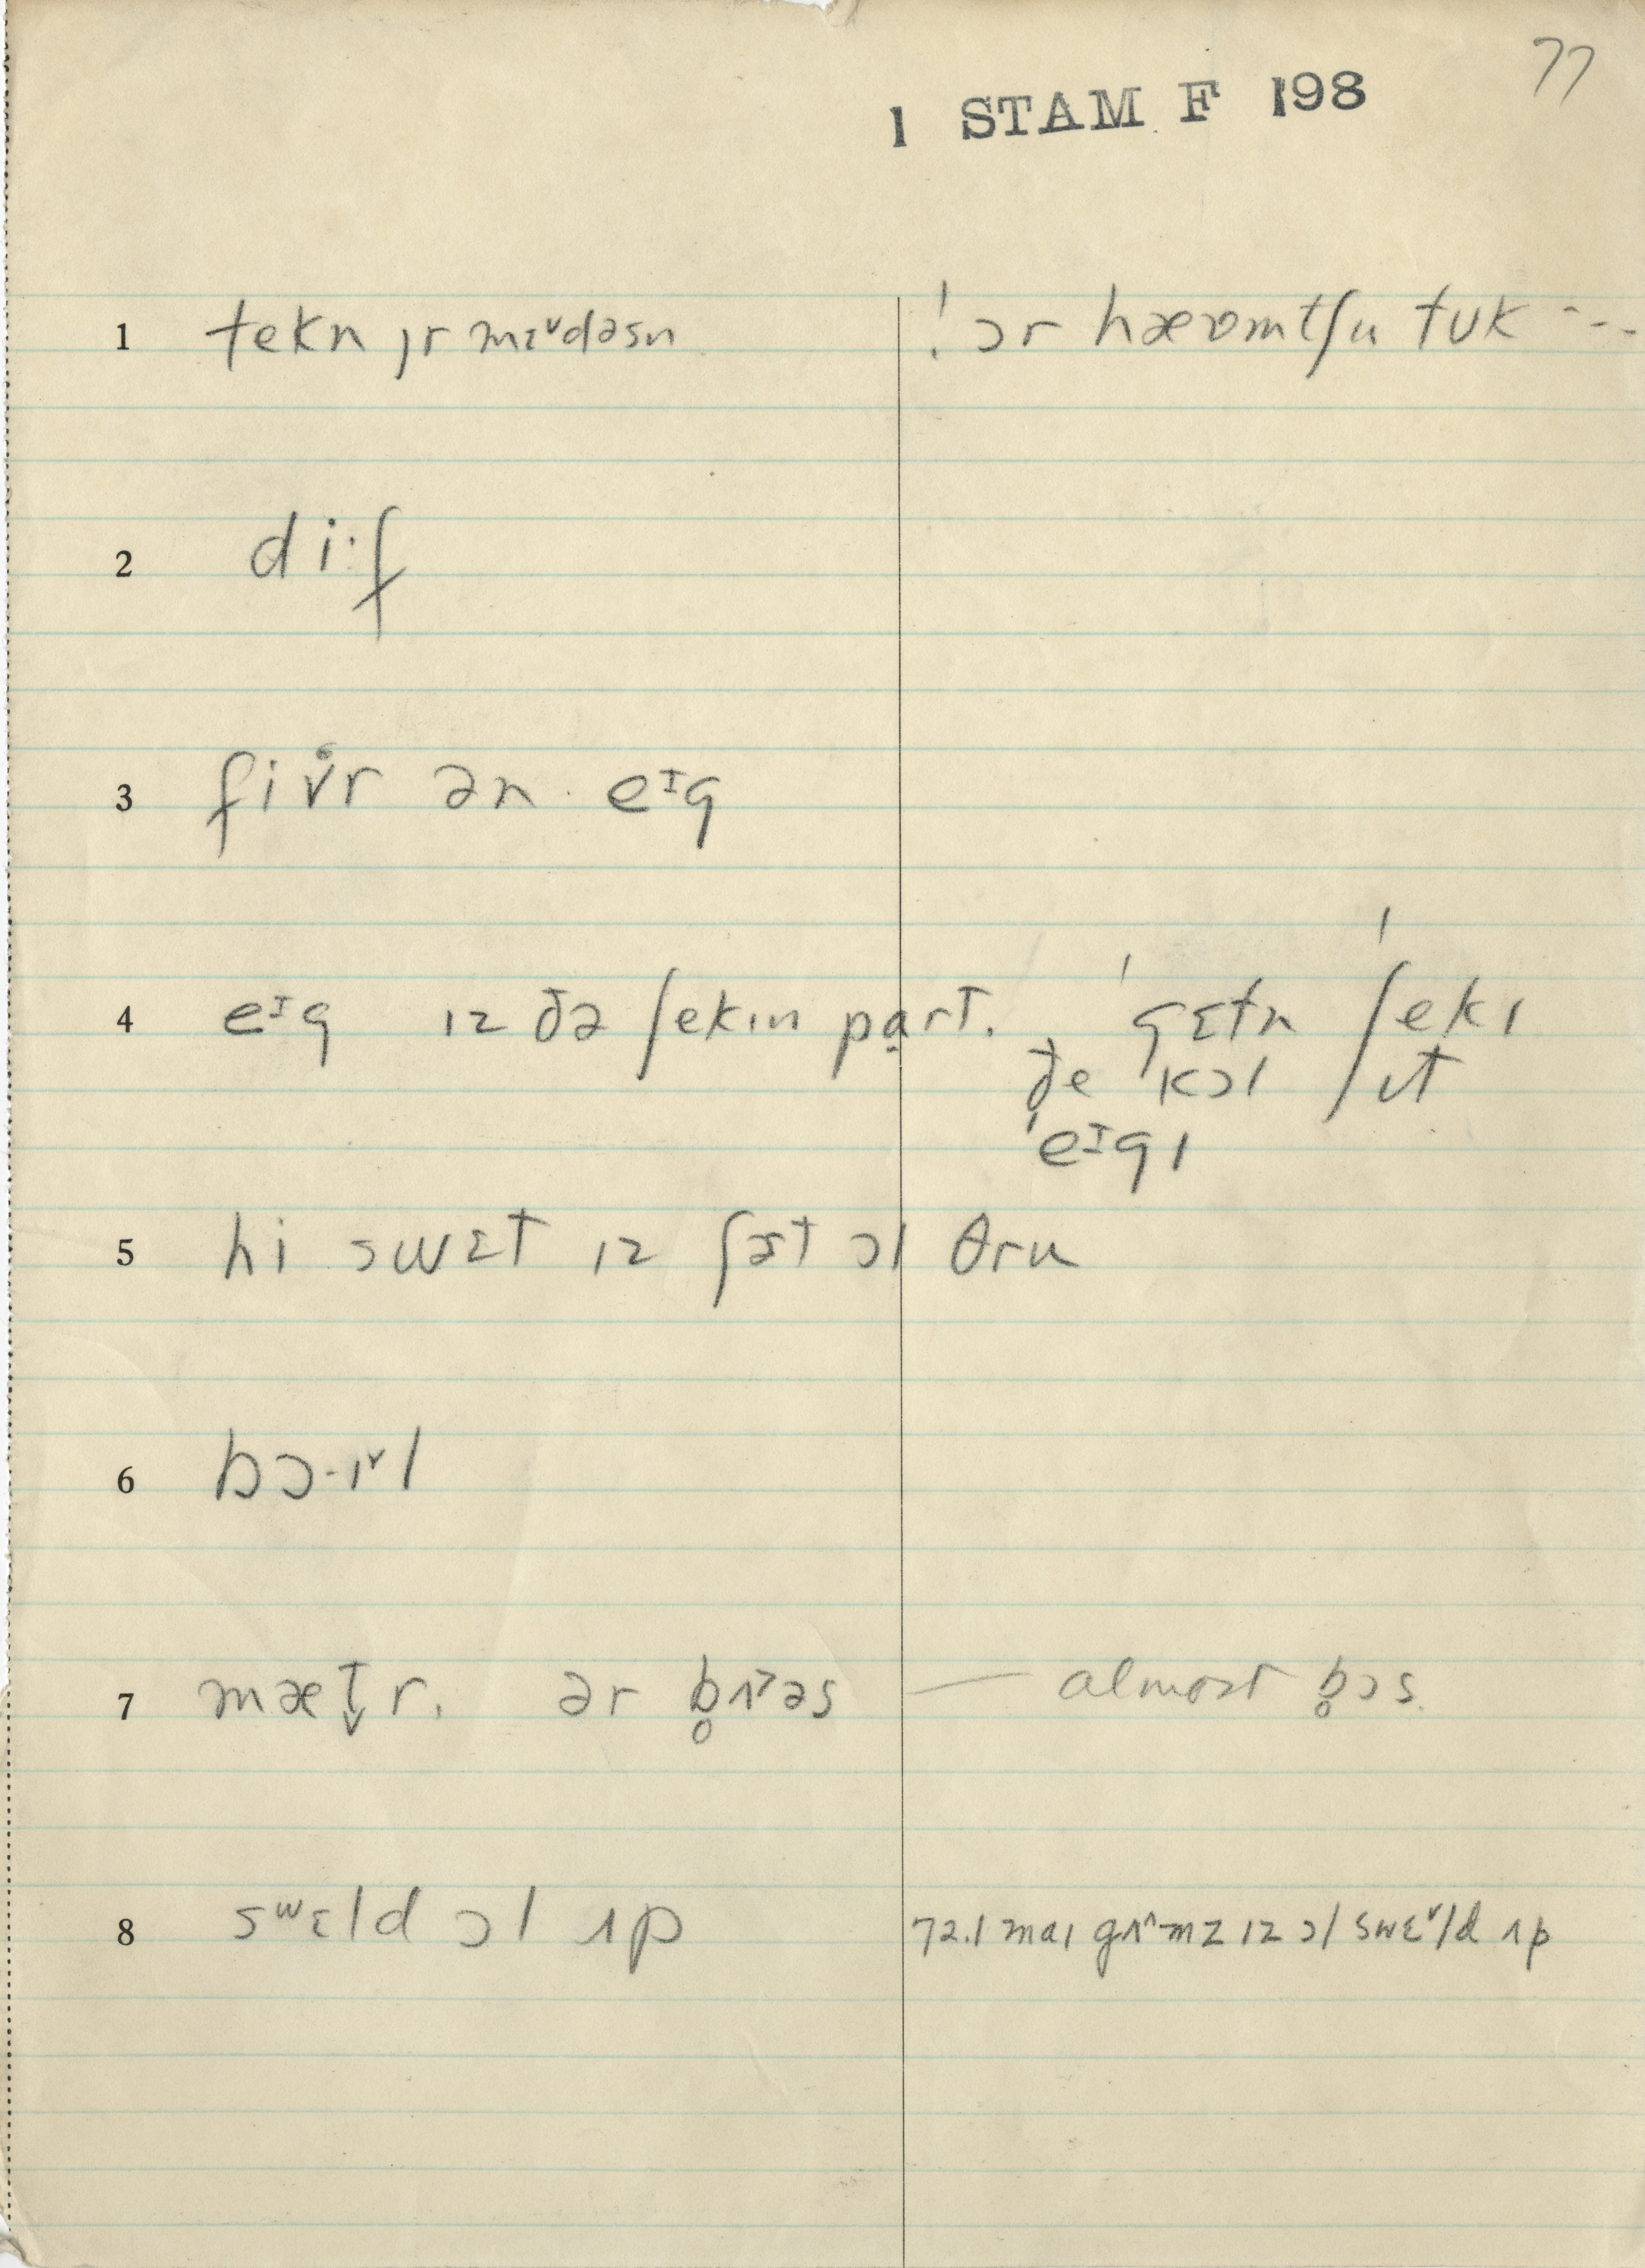 77
1 STAM F 198
1 tekn ȷr mɛᵛdəsn ! ɔr hæʊmtʃu tuk ---
2 di·f
3 fiv̊r ən eᶦg
4 eᶦg ɪz ðə ʃekɪn pɑrt. ˈgɛtn ˈʃekɪ
ðe ˈkɔl ɪt
ˈeᶦgɪ
5 hi swɛt ɪz fət ɔl θru
6 bɔ·ɪᵛl
7 mæt̬r. ər b̥ʌ˃əs — almost b̥ɔs.
8 sʷɛld ɔl ʌp 72.1 maɪ gʌ^mz ɪz ɔl swɛᵛld ʌp